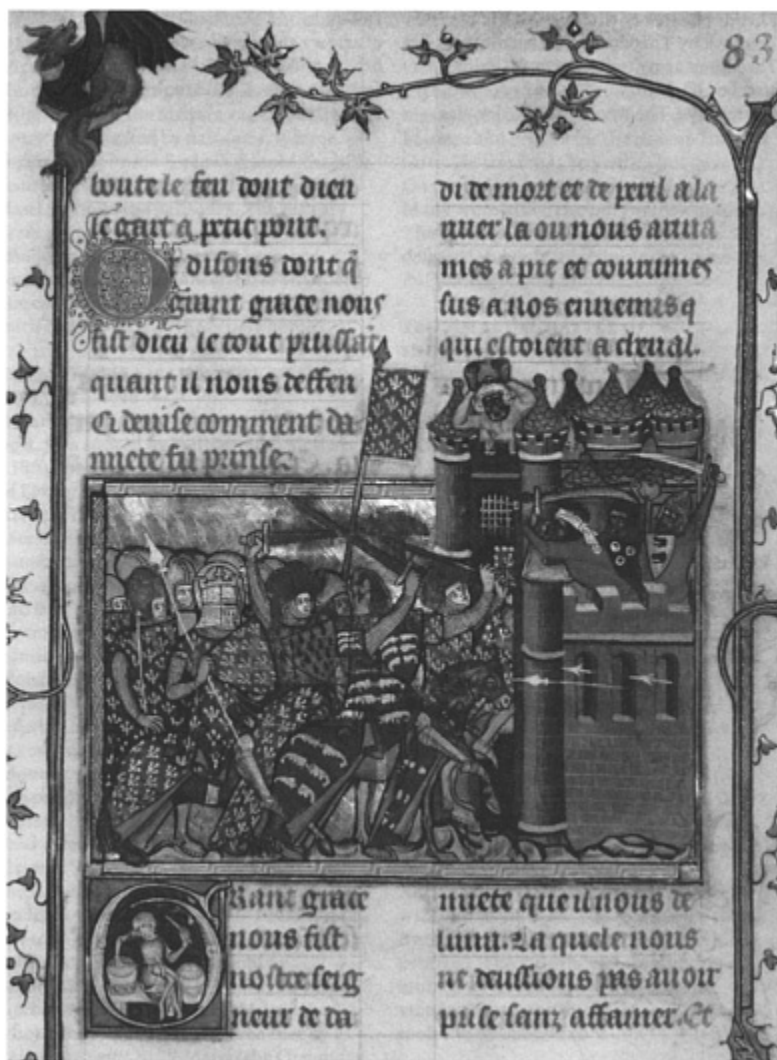 83
toute le feu dont dieu
le gart a petit pont.
Or disons dont q̃
grant grace nous
fist dieu le tout puissãt
quant il nous deffen
Ci deuise comment da
miete fu prinse.
di de mort et de peril a la
quer la ou nous arriua
mes a pie et courumes
sus a nos ennemis q
qui estoient a cheual.
Grant grace
nous fist
nostre seig
neur de da
miete que il nous de
liura. La quele nous
ne deussions pas auoir
prise sanz affamer. Et